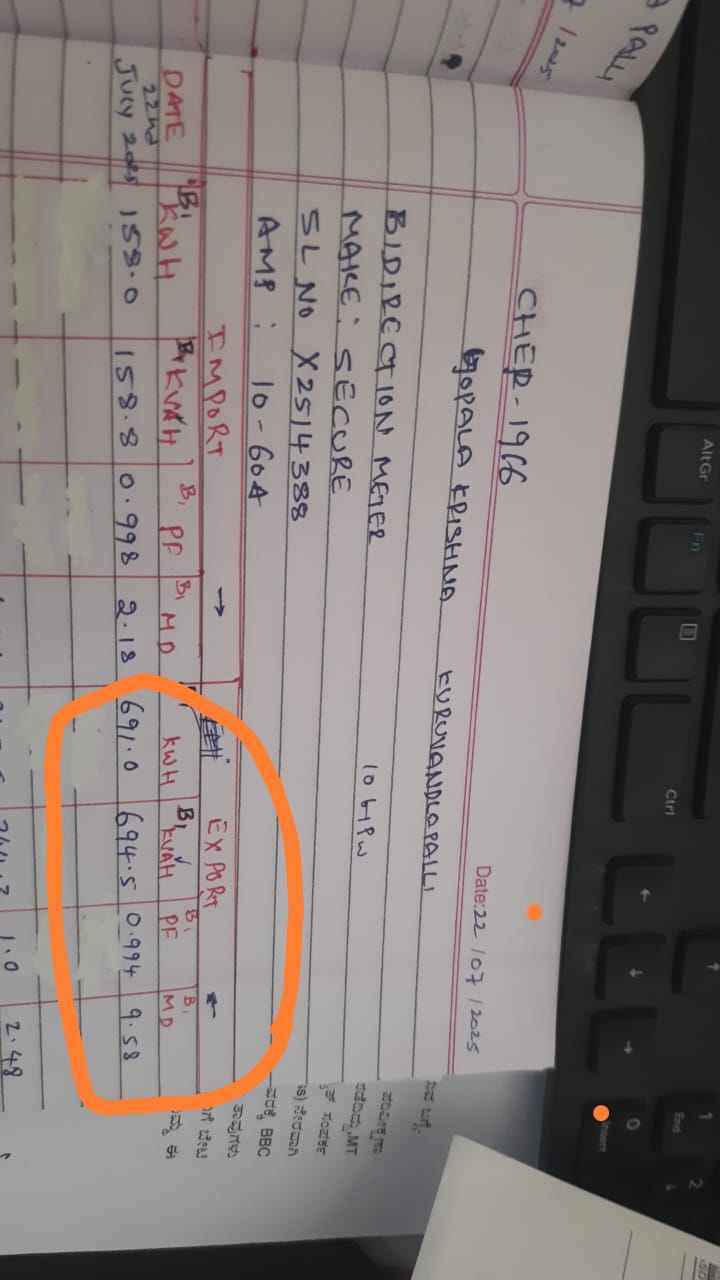 Date: 22/07/2025
CHER-1966
GOPALA KRISHNA KURUVANDLAPALLI
BIDIRECTION METER 10 HPW
MAKE: SECURE
SL NO X2514388
AMP: 10-60A
IMPORT → EXPORT ←
DATE B1 KWH B1 KVAH B1 PF B1 MD KWH B1 KVAH B1 PF B1 MD
22nd July 2025 158.0 158.8 0.998 2.18 691.0 694.5 0.994 9.58
1.0 2.48
AltGr
Fn
Ctrl
1
End
0
2
BBC